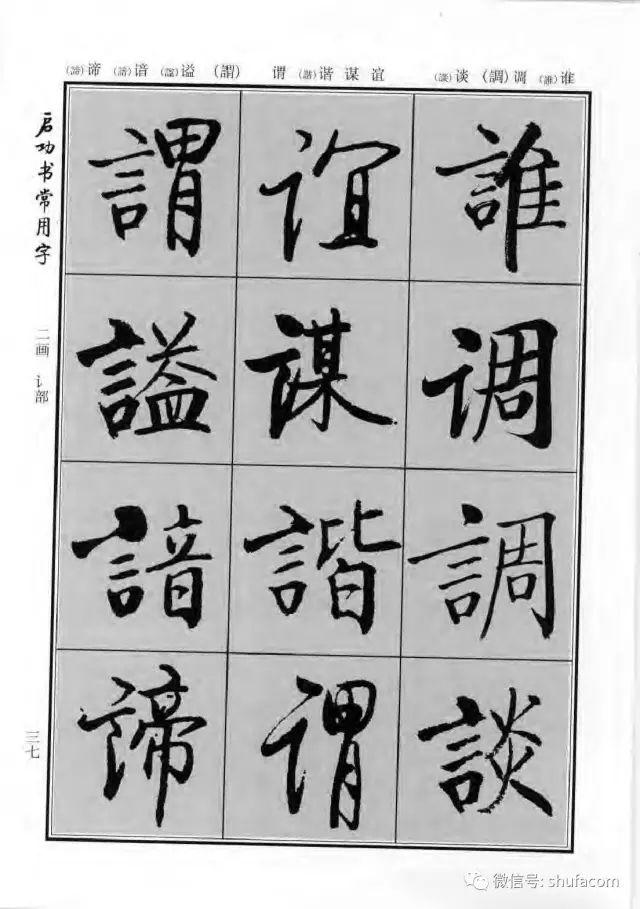 (諦)谛 (諳)谙 (謚)谥 (謂) 谓 (諧)谐 谋 谊 (談)谈 (調)调 (誰)谁
启功书常用字
二画 讠部
三七
謂 谊 誰
謚 谋 调
諳 諧 調
諦 谓 談
微信号: shufacom